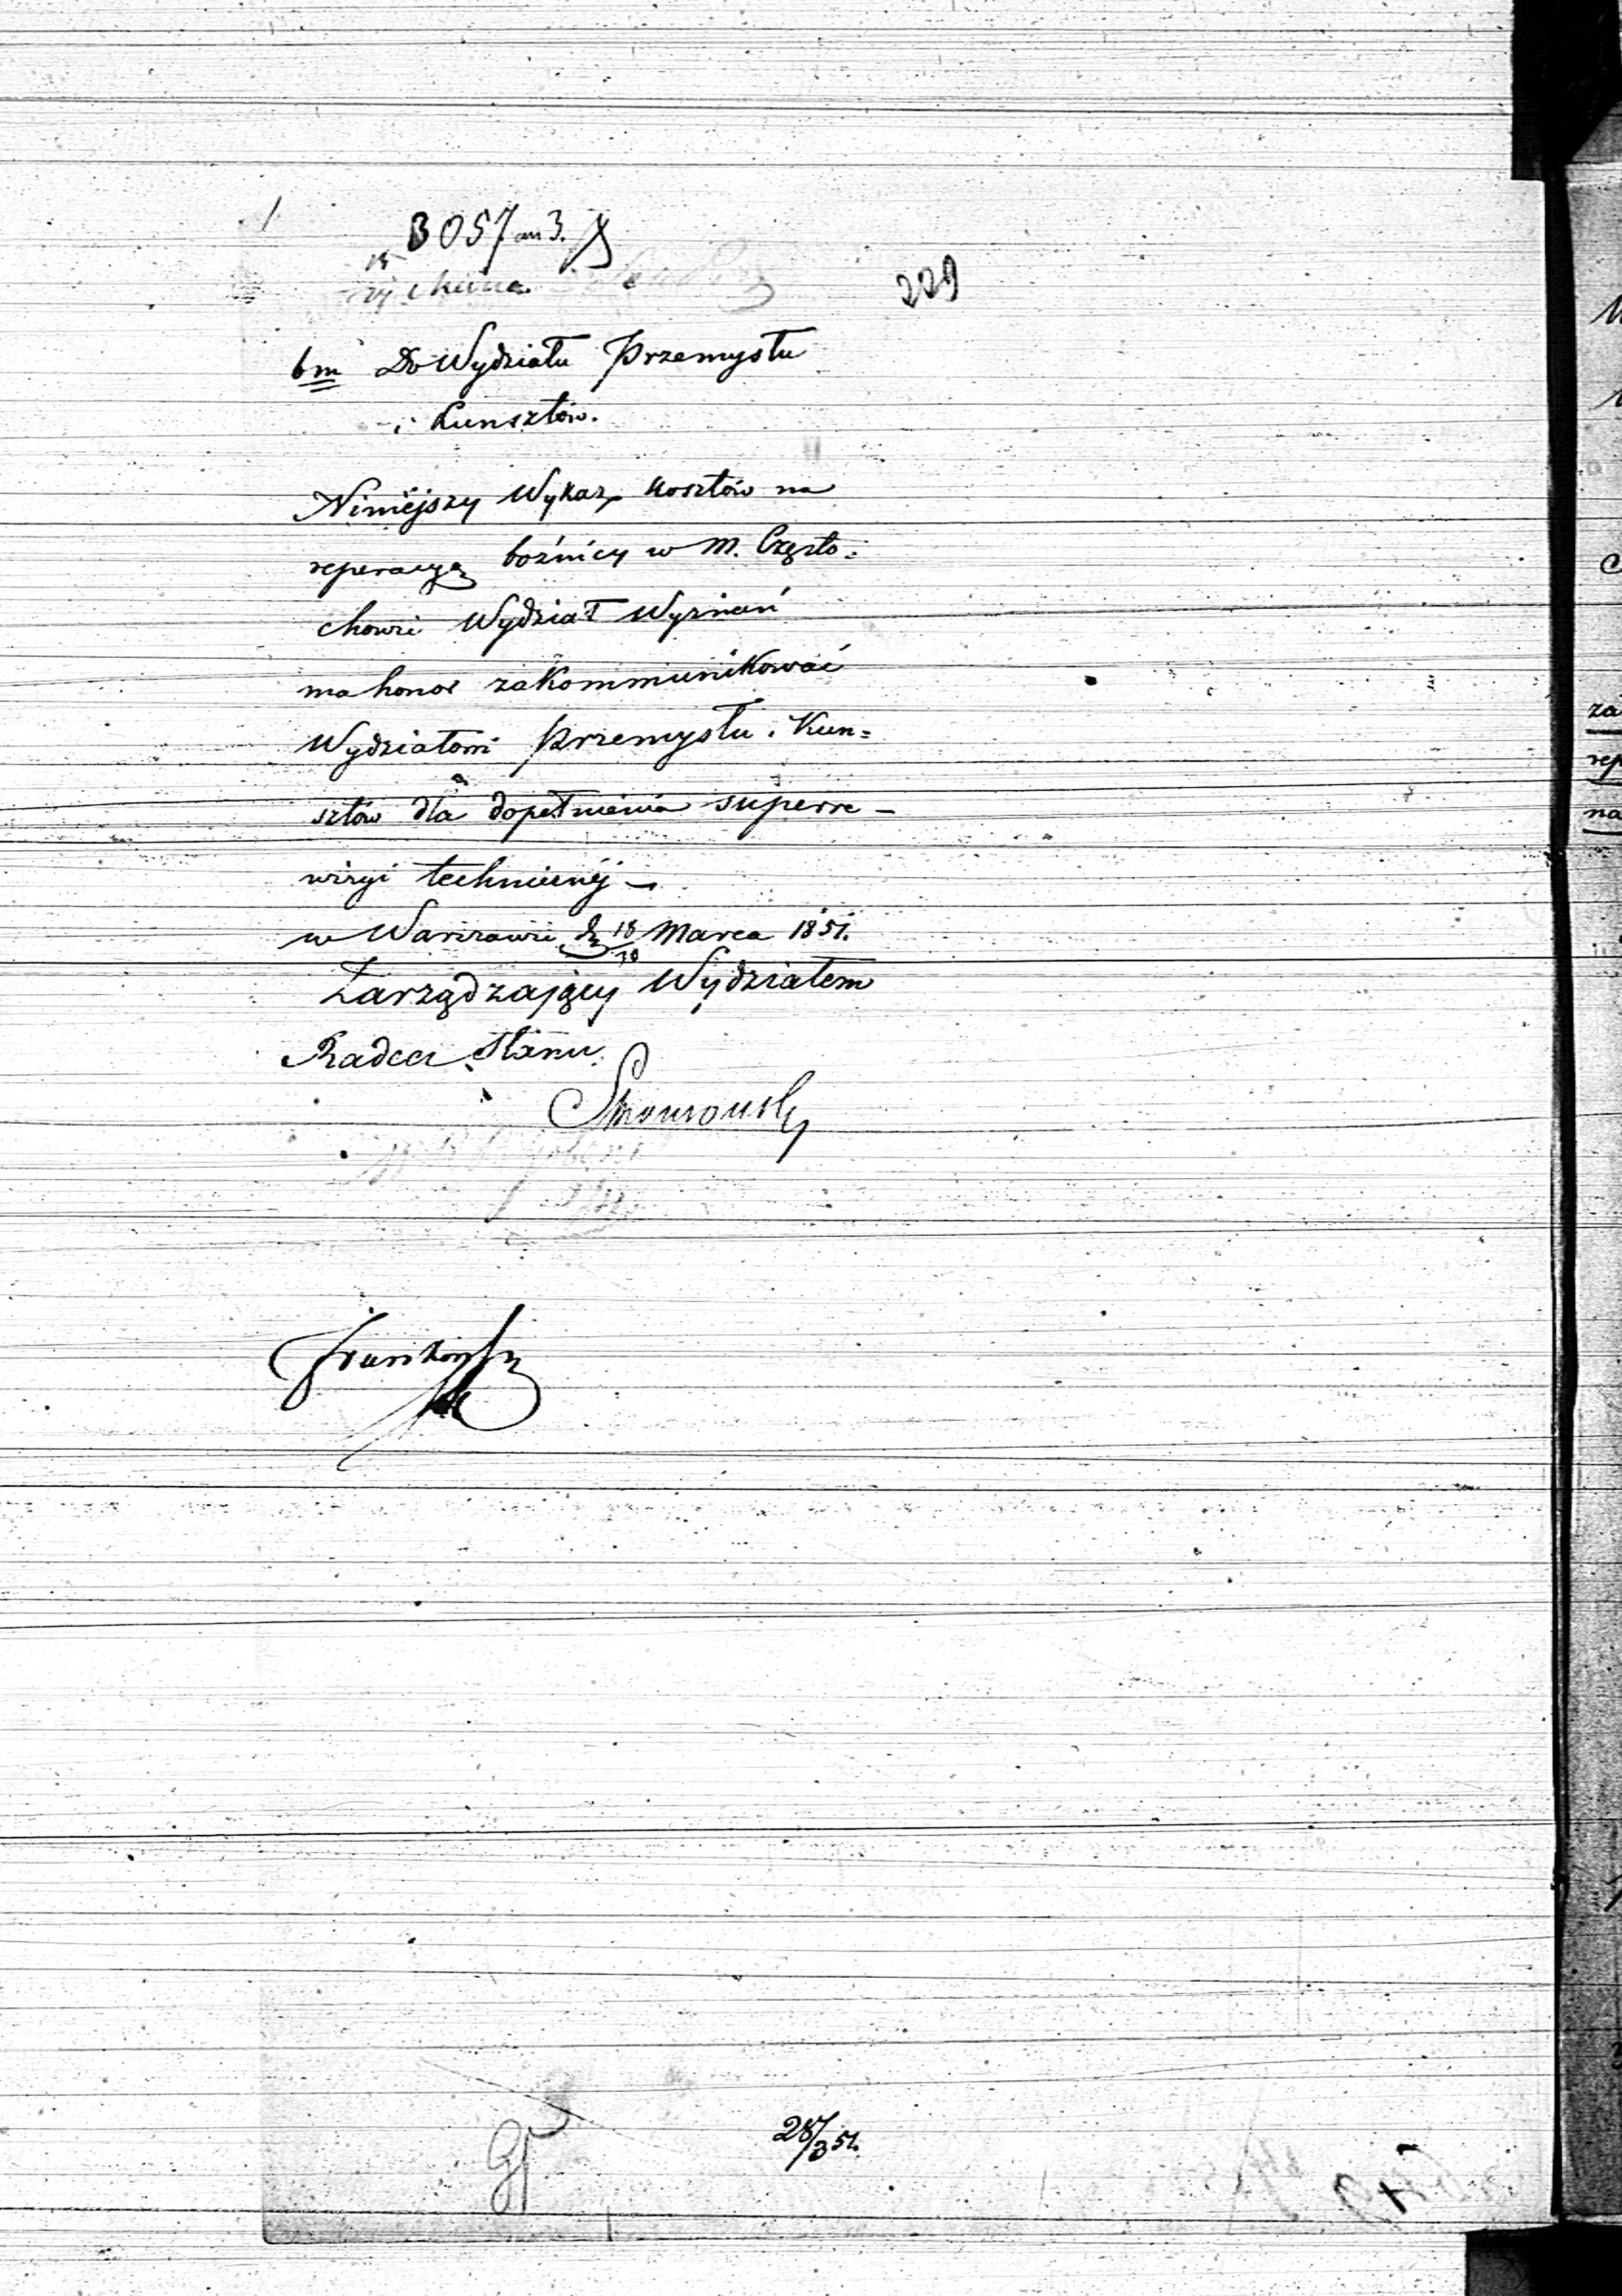 3057 an 3.
229
bm Do Wydziału Przemysłu
i Kunsztów.
Niniejszy Wykaz kosztów na
reperacyą bóźnicy w M. Często=
chowie Wydział Wyznań
ma honor zakommunikować
Wydziałowi Przemysłu i Kun=
sztów dla dopełnienia superre-
wizyi technicznéj —
w Warszawie d. 18/30 Marca 1851.
Zarządzający Wydziałem
Radca Stanu
28/3 51.